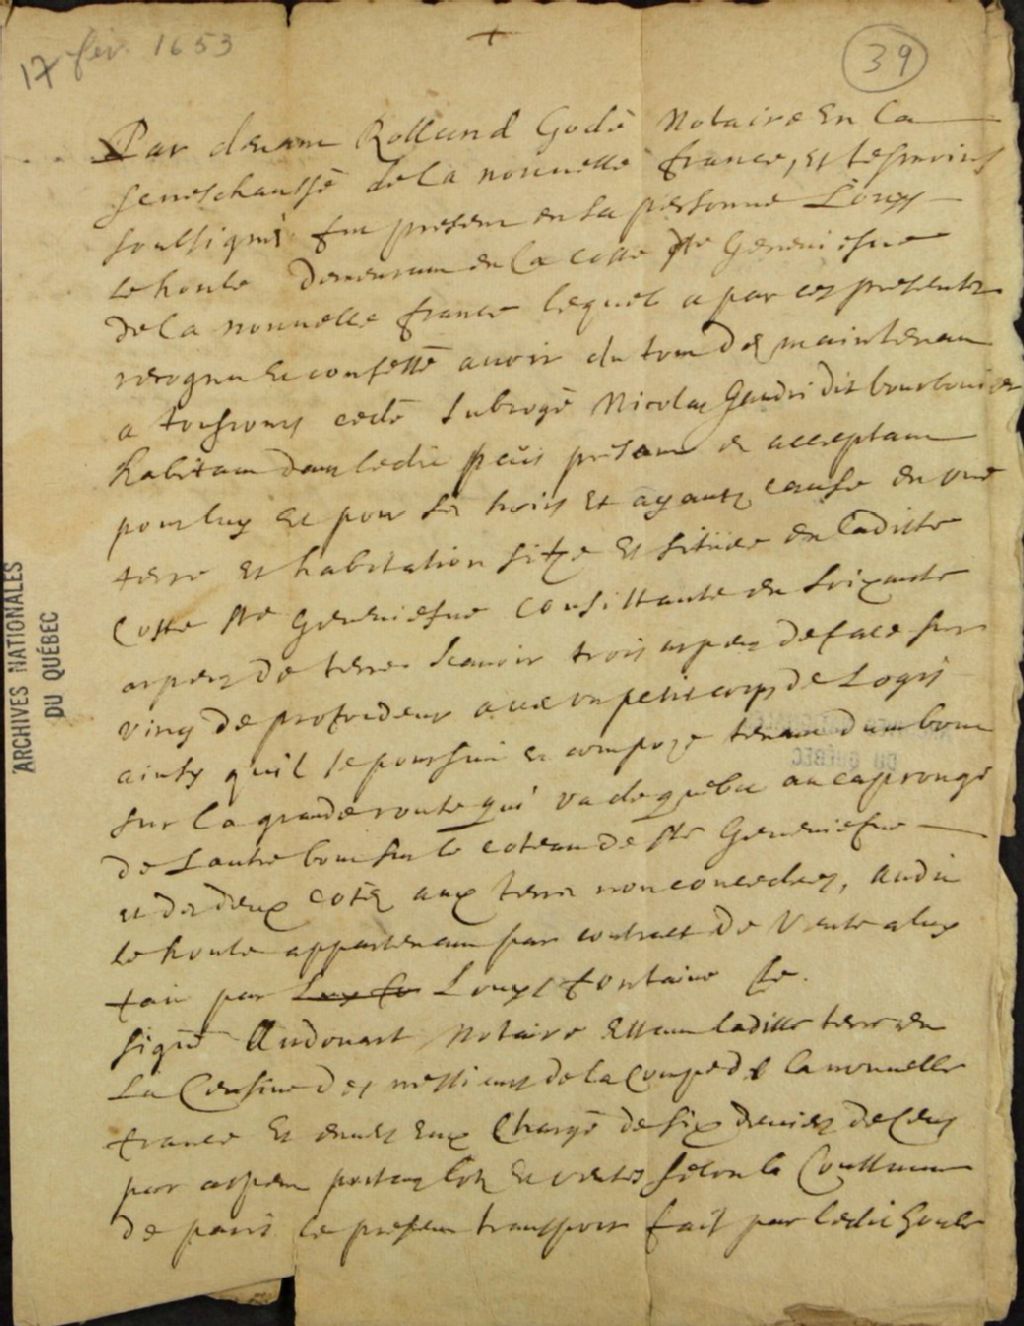 17 fev. 1653
39
Par devam Rolland Godé Notaire En la
seneschaussé de la nouvelle france, Et tesmoins
soulsignés fut presem en sa personne Louys
le houle demeuram en la coste Ste Geneviesve
de la nouvelle france lequel a par ces presentes
recognu Et confessé avoir du tout des maintenam
a tousjours cedé subrogé Nicolas Gaudri dit bourbonier
habitam dans ledit païs presam et acceptam
pour luy Et pour ses hoirs Et ayantz cause en une
terre Et habitation size Et situee en laditte
Coste Ste Geneviesve Consistante en soixante
arpens de terre scavoir trois arpens de face sur
ving de profondeur avec un petit corps de Logis
ainsy quil se poursuit et compoze tenam d'um bout
sur la grande routte qui va de québec au cap rouge
de L'autre bout sur le coteau de Ste Geneviesve
et des deux cotés aux terres non concedees, audit
le houle appartenam par contract de Vente a luy
fait par Louys fontaine
signé Audouart Notaire Estam laditte terre en
La Censive des messieurs de la Compe de la nouvelle
france Et envers Eux Chargé de six deniers de Cens
par arpem portans lotz Et ventes selon la Coustume
de paris le presem transport fait par ledit houle
ARCHIVES NATIONALES
DU QUÉBEC